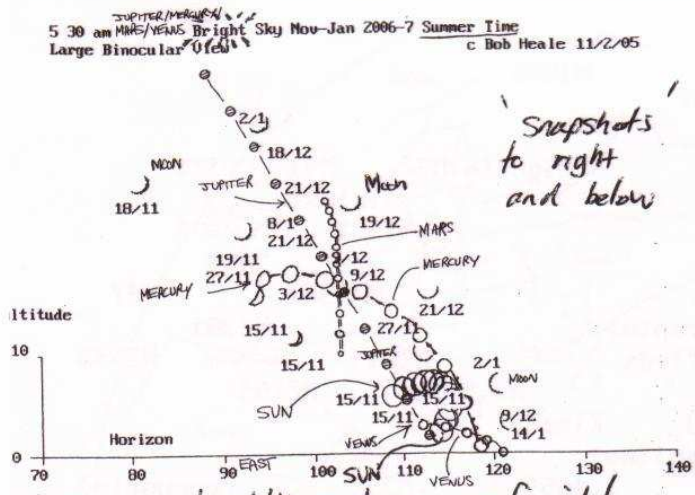 JUPITER/MERCURY/
5 30 am MARS/VENUS Bright Sky Nov-Jan 2006-7 Summer Time
Large Binocular View c Bob Heale 11/2/05
Snapshots
to right
and below
2/1
18/12
MOON
18/11
JUPITER
21/12
Moon
19/12
8/1
21/12
MARS
19/11
27/11
MERCURY
3/12
9/12
MERCURY
21/12
ltitude
15/11
27/11
10
15/11
JUPITER
2/1
MOON
SUN
15/11
15/11
15/11
8/12
14/1
Horizon
VENUS
0
EAST
SUN
VENUS
70 90 100 110 120 130 140